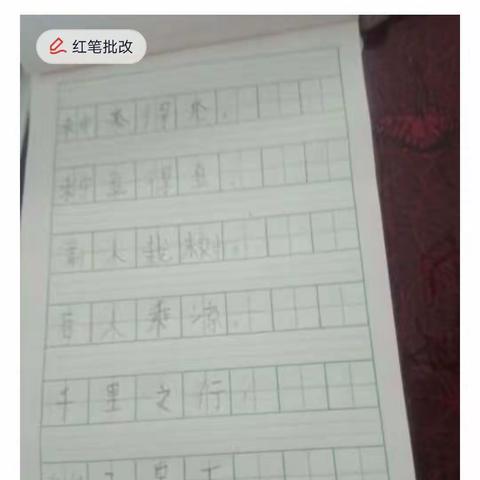 红笔批改
种瓜得瓜,
种豆得豆。
前人栽树,
后人乘凉。
千里之行,